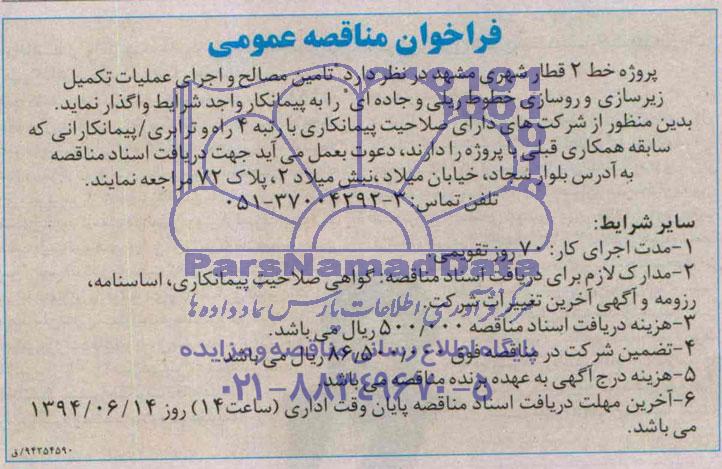 فراخوان مناقصه عمومی
پروژه خط ۲ قطار شهری مشهد در نظر دارد "تامین مصالح و اجرای عملیات تکمیل
زیرسازی و روسازی خطوط ریلی و جاده ای" را به پیمانکار واجد شرایط واگذار نماید.
بدین منظور از شرکت های دارای صلاحیت پیمانکاری با رتبه ۴ راه و ترابری/پیمانکارانی که
سابقه همکاری قبلی با پروژه را دارند، دعوت بعمل می آید جهت دریافت اسناد مناقصه
به آدرس بلوار سجاد، خیابان میلاد، نبش میلاد ۲، پلاک ۷۲ مراجعه نمایند.
تلفن تماس: ۳-۳۷۰۰۴۲۹۲-۰۵۱
سایر شرایط:
۱-مدت اجرای کار: ۷۰ روز تقویمی.
۲-مدارک لازم برای دریافت اسناد مناقصه: گواهی صلاحیت پیمانکاری، اساسنامه،
رزومه و آگهی آخرین تغییرات شرکت.
۳-هزینه دریافت اسناد مناقصه ۵۰۰/۰۰۰ ریال می باشد.
۴-تضمین شرکت در مناقصه فوق ۸۶,۵۰۰,۰۰۰ ریال می باشد.
۵-هزینه درج آگهی به عهده برنده مناقصه می باشد.
۶-آخرین مهلت دریافت اسناد مناقصه پایان وقت اداری (ساعت۱۴) روز ۱۳۹۴/۰۶/۱۴
می باشد.
۹۴۲۵۴۵۹۰/ق
ParsNamadData
مرکز فرآوری اطلاعات پارس نماد داده ها
پایگاه اطلاع رسانی مناقصه و مزایده
۰۲۱-۸۸۳۴۹۶۷۰-۵